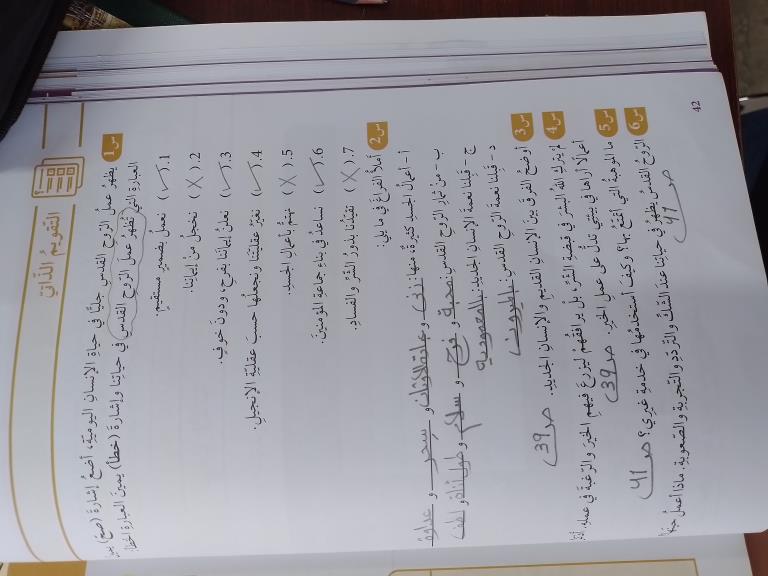 التقويمُ الذّاتيّ
س1 يظهرُ عملُ الرّوحِ القدسِ جليًّا في حياةِ الإنسانِ اليوميّةِ، أضعُ إشارةَ (صحّ)
العبارةِ الّتي تُظهرُ عملَ الرّوحِ القدسِ في حياتِنا وإشارةَ (خطأ) يمينَ العبارةِ
1. (✓) نعملُ بضميرٍ مستقيمٍ.
2. (X) نخجلُ من إيمانِنا.
3. (✓) نعلنُ إيمانَنا بفرحٍ، ودونَ خوفٍ.
4. (✓) نغيّرُ عقليّتَنا ونجعلُها حسبَ عقليّةِ الإنجيلِ.
5. (X) نهتمُّ بأعمالِ الجسدِ.
6. (✓) نساعدُ في بناءِ جماعةِ المؤمنينَ.
7. (X) تقيّدُنا بذورُ الشّرِّ والفسادِ.
س2 أملأُ الفراغَ في ما يلي:
أ - أعمالُ الجسدِ كثيرةٌ منها: زنى و عبادة الاوثان و سحر و عداوة
ب - من ثمارِ الرّوحِ القدسِ: محبة و فرح و سلام و طول أناة و لطف
ج - قبلنا نعمةَ الإنسانِ الجديدِ: بالمعمودية
د - قبلنا نعمةَ الرّوحِ القدسِ: بالميرون
س3 أوضحُ الفرقَ بينَ الإنسانِ القديمِ والإنسانِ الجديدِ. ص 39
س4 لم يتركِ اللهُ البشرَ في قبضةِ الشّرِّ، بل يرافقُهم ليزرعَ فيهم الخيرَ والرّغبةَ في عملِهِ.
أعمالًا أراها في بيئتي تدلُّ على عملِ الخيرِ. ص 39
س5 ما الموهبةُ الّتي أتمتّعُ بها؟ وكيفَ أستخدمُها في خدمةِ غيري؟ ص 41
س6 الرّوحُ القدسُ يظهرُ في حياتِنا عندَ الشّكِّ والتّردّدِ والتّجربةِ والصّعوبةِ. ماذا أعملُ
ص 41
42